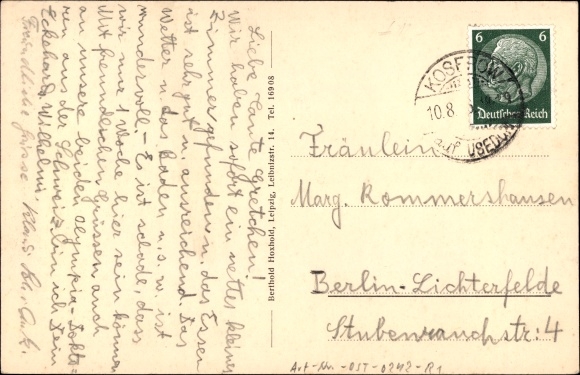 Liebe Tante Gretchen!
Wir haben sofort ein nettes kleines
Zimmer gefunden u. das Essen
ist sehr gut u. ausreichend. Das
Wetter u. das Baden u.s.w. ist
wundervoll. – Es ist schade, dass
wir nur 1 Woche hier sein können.
Mit freundlichen Grüssen, auch
an unsere beiden Olympia-
aus der Schweiz bin ich Dein
Eckehard Wilhelmi.
Freundliche Grüsse Klaus
Berthold Hoxhold, Leipzig, Leibnizstr. 14. Tel. 16908
6 6
Deutsches Reich
KOSEROW
10.8.
USEDOM
Fräulein
Marg. Rommershausen
Berlin-Lichterfelde
Stubenrauchstr. 4
Art-Nr.-OST-0242-R1